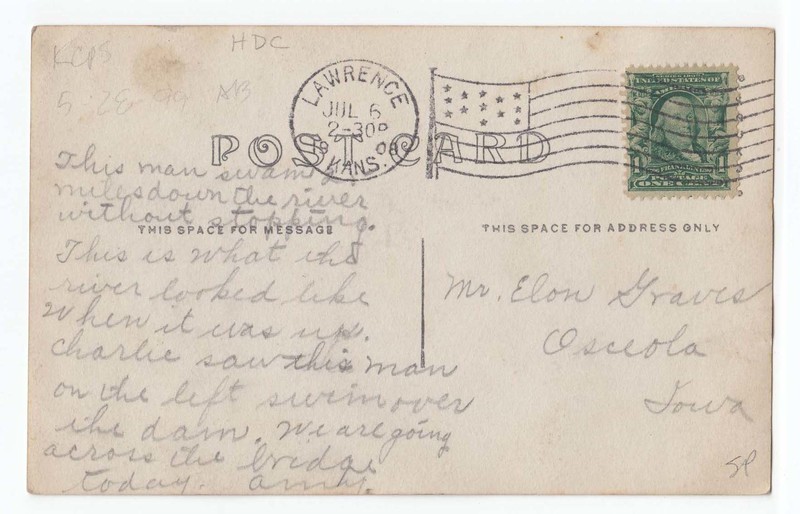 HDC
KCPS
5 28 99 AB
LAWRENCE
JUL 6
2-30P
1908
KANS.
POST CARD
SERIES 1902
UNITED STATES OF AMERICA
FRANKLIN
1 POSTAGE 1
ONE CENT
This man swam
miles down the river
without stopping.
THIS SPACE FOR MESSAGE
This is what the
river looked like
When it was up.
Charlie saw this man
on the left swim over
the dam. We are going
across the bridge
today. Amy.
THIS SPACE FOR ADDRESS ONLY
Mr. Elon Graves
Osceola
Iowa
SP